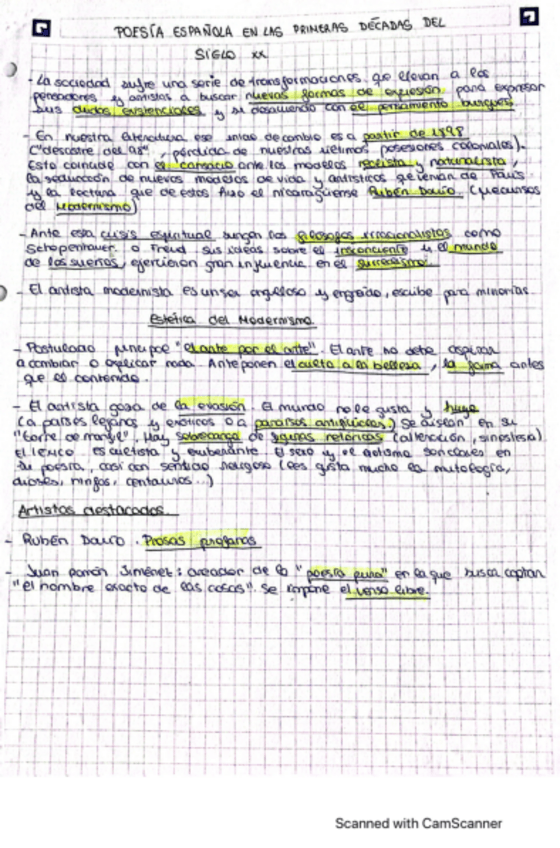 POESÍA ESPAÑOLA EN LAS PRIMERAS DÉCADAS DEL
SIGLO XX
- La sociedad sufre una serie de transformaciones que llevan a los
pensadores y artistas a buscar nuevas formas de expresión, para expresar
sus dudas existenciales y su desacuerdo con el pensamiento burgués.
- En nuestra literatura ese ansia de cambio es a partir de 1898
("desastre del 98", pérdida de nuestras últimas posesiones coloniales).
Esto coincide con el cansancio ante los modelos realista y naturalista,
la seducción de nuevos modelos de vida y artísticos que venían de París
y la lectura que de estos hizo el nicaragüense Rubén Darío (
del Modernismo)
- Ante esta crisis espiritual surgen los filósofos irracionalistas como
Schopenhauer o Freud sus ideas sobre el inconciente y el mundo
de los sueños, ejercieron gran influencia en el surrealismo.
- El artista modernista es un ser orgulloso y engreído, escribe para minorías
Estética del Modernismo
- Postulado "el arte por el arte". El arte no debe aspirar
a cambiar o explicar nada. Anteponen el culto a la belleza, la forma antes
que el contenido.
- El artista goza de la evasión. El mundo no le gusta y huye
(a países lejanos y exóticos o a paraísos artificiales) Se aislan en su
"torre de marfil". Hay sobrecarga de figuras retóricas (aliteración, sinestesia)
El léxico es y exuberante. El sexo y el erotismo son claves en
su poesía, casi con sentido religioso (les gusta mucho la mitología,
dioses, ninfas, centauros...)
Artistas destacados
- Rubén Darío. Prosas profanas
- Juan Ramón Jiménez: creador de la "poesía pura" en la que busca captar
"el nombre exacto de las cosas". Se impone el verso libre.
Scanned with CamScanner